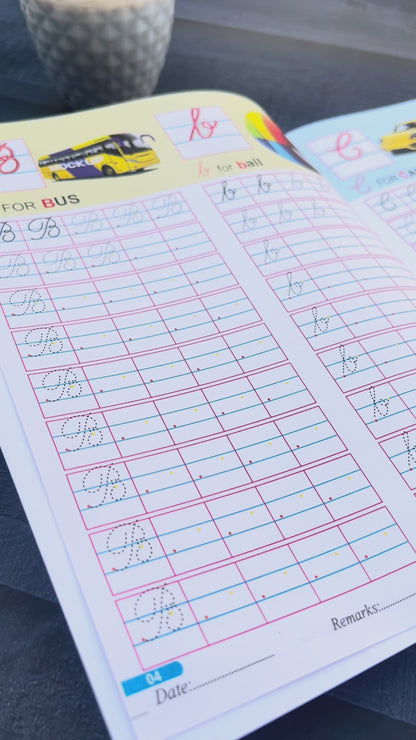 B
b
C
FOR BUS
b for ball
C FOR CA
B B B B B
B B B
B
B
B
B
B
B
B
b b b b
b b b
b
b
b
b
b
b
04
Date:
Remarks: